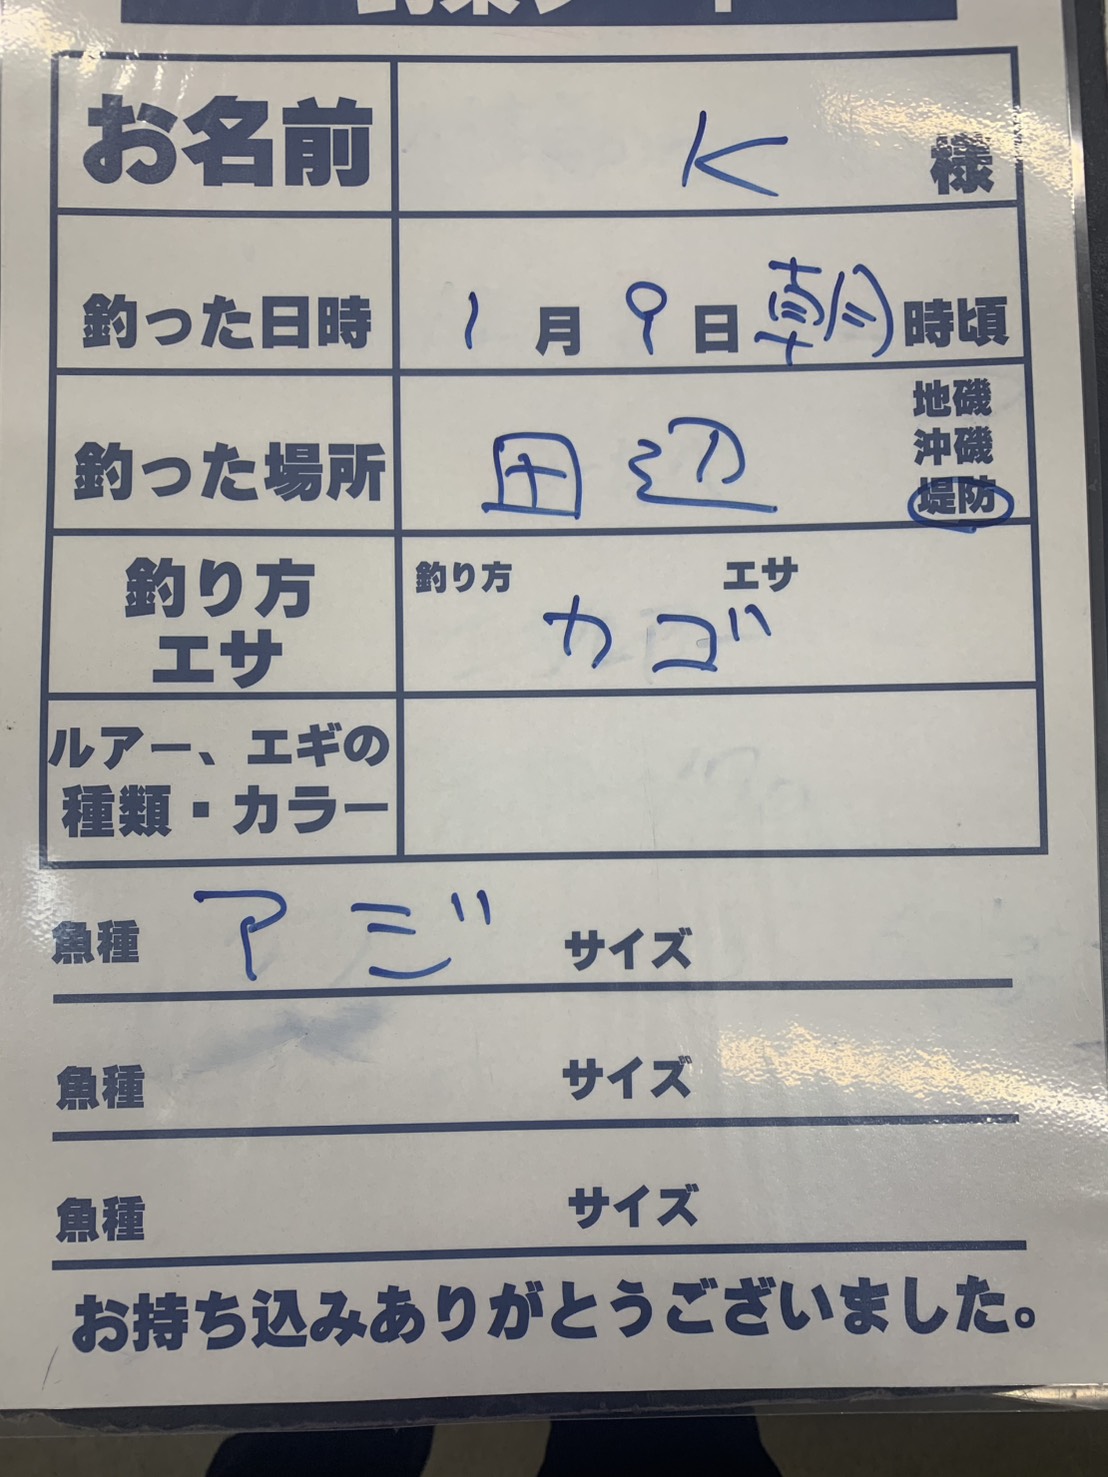 お名前 K 様
釣った日時 1月9日 朝 時頃
釣った場所 田辺 地磯
沖磯
堤防
釣り方 エサ
釣り方 エサ
カゴ
ルアー、エギの
種類・カラー
魚種 アジ サイズ
魚種 サイズ
魚種 サイズ
お持ち込みありがとうございました。